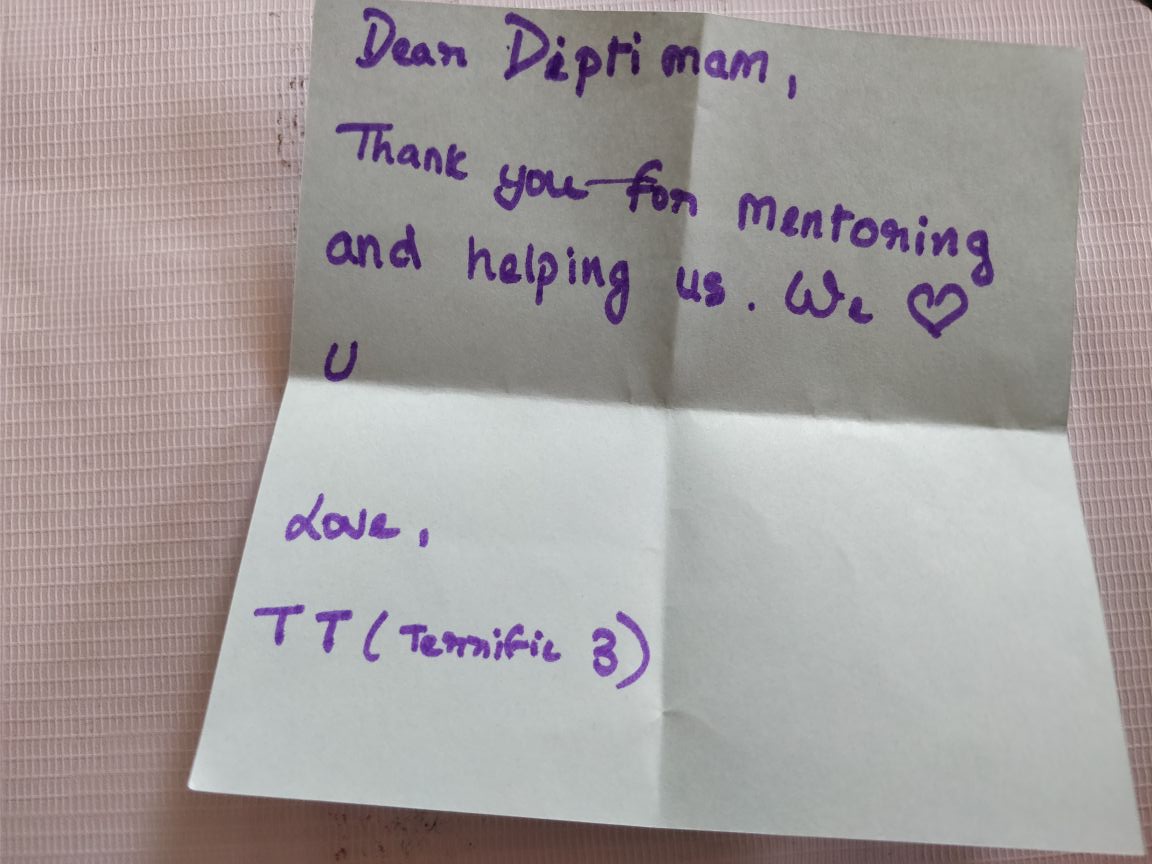 Dear Dipti mam,
Thank you for mentoring
and helping us. We ♡
U
Love,
TT (Terrific 3)